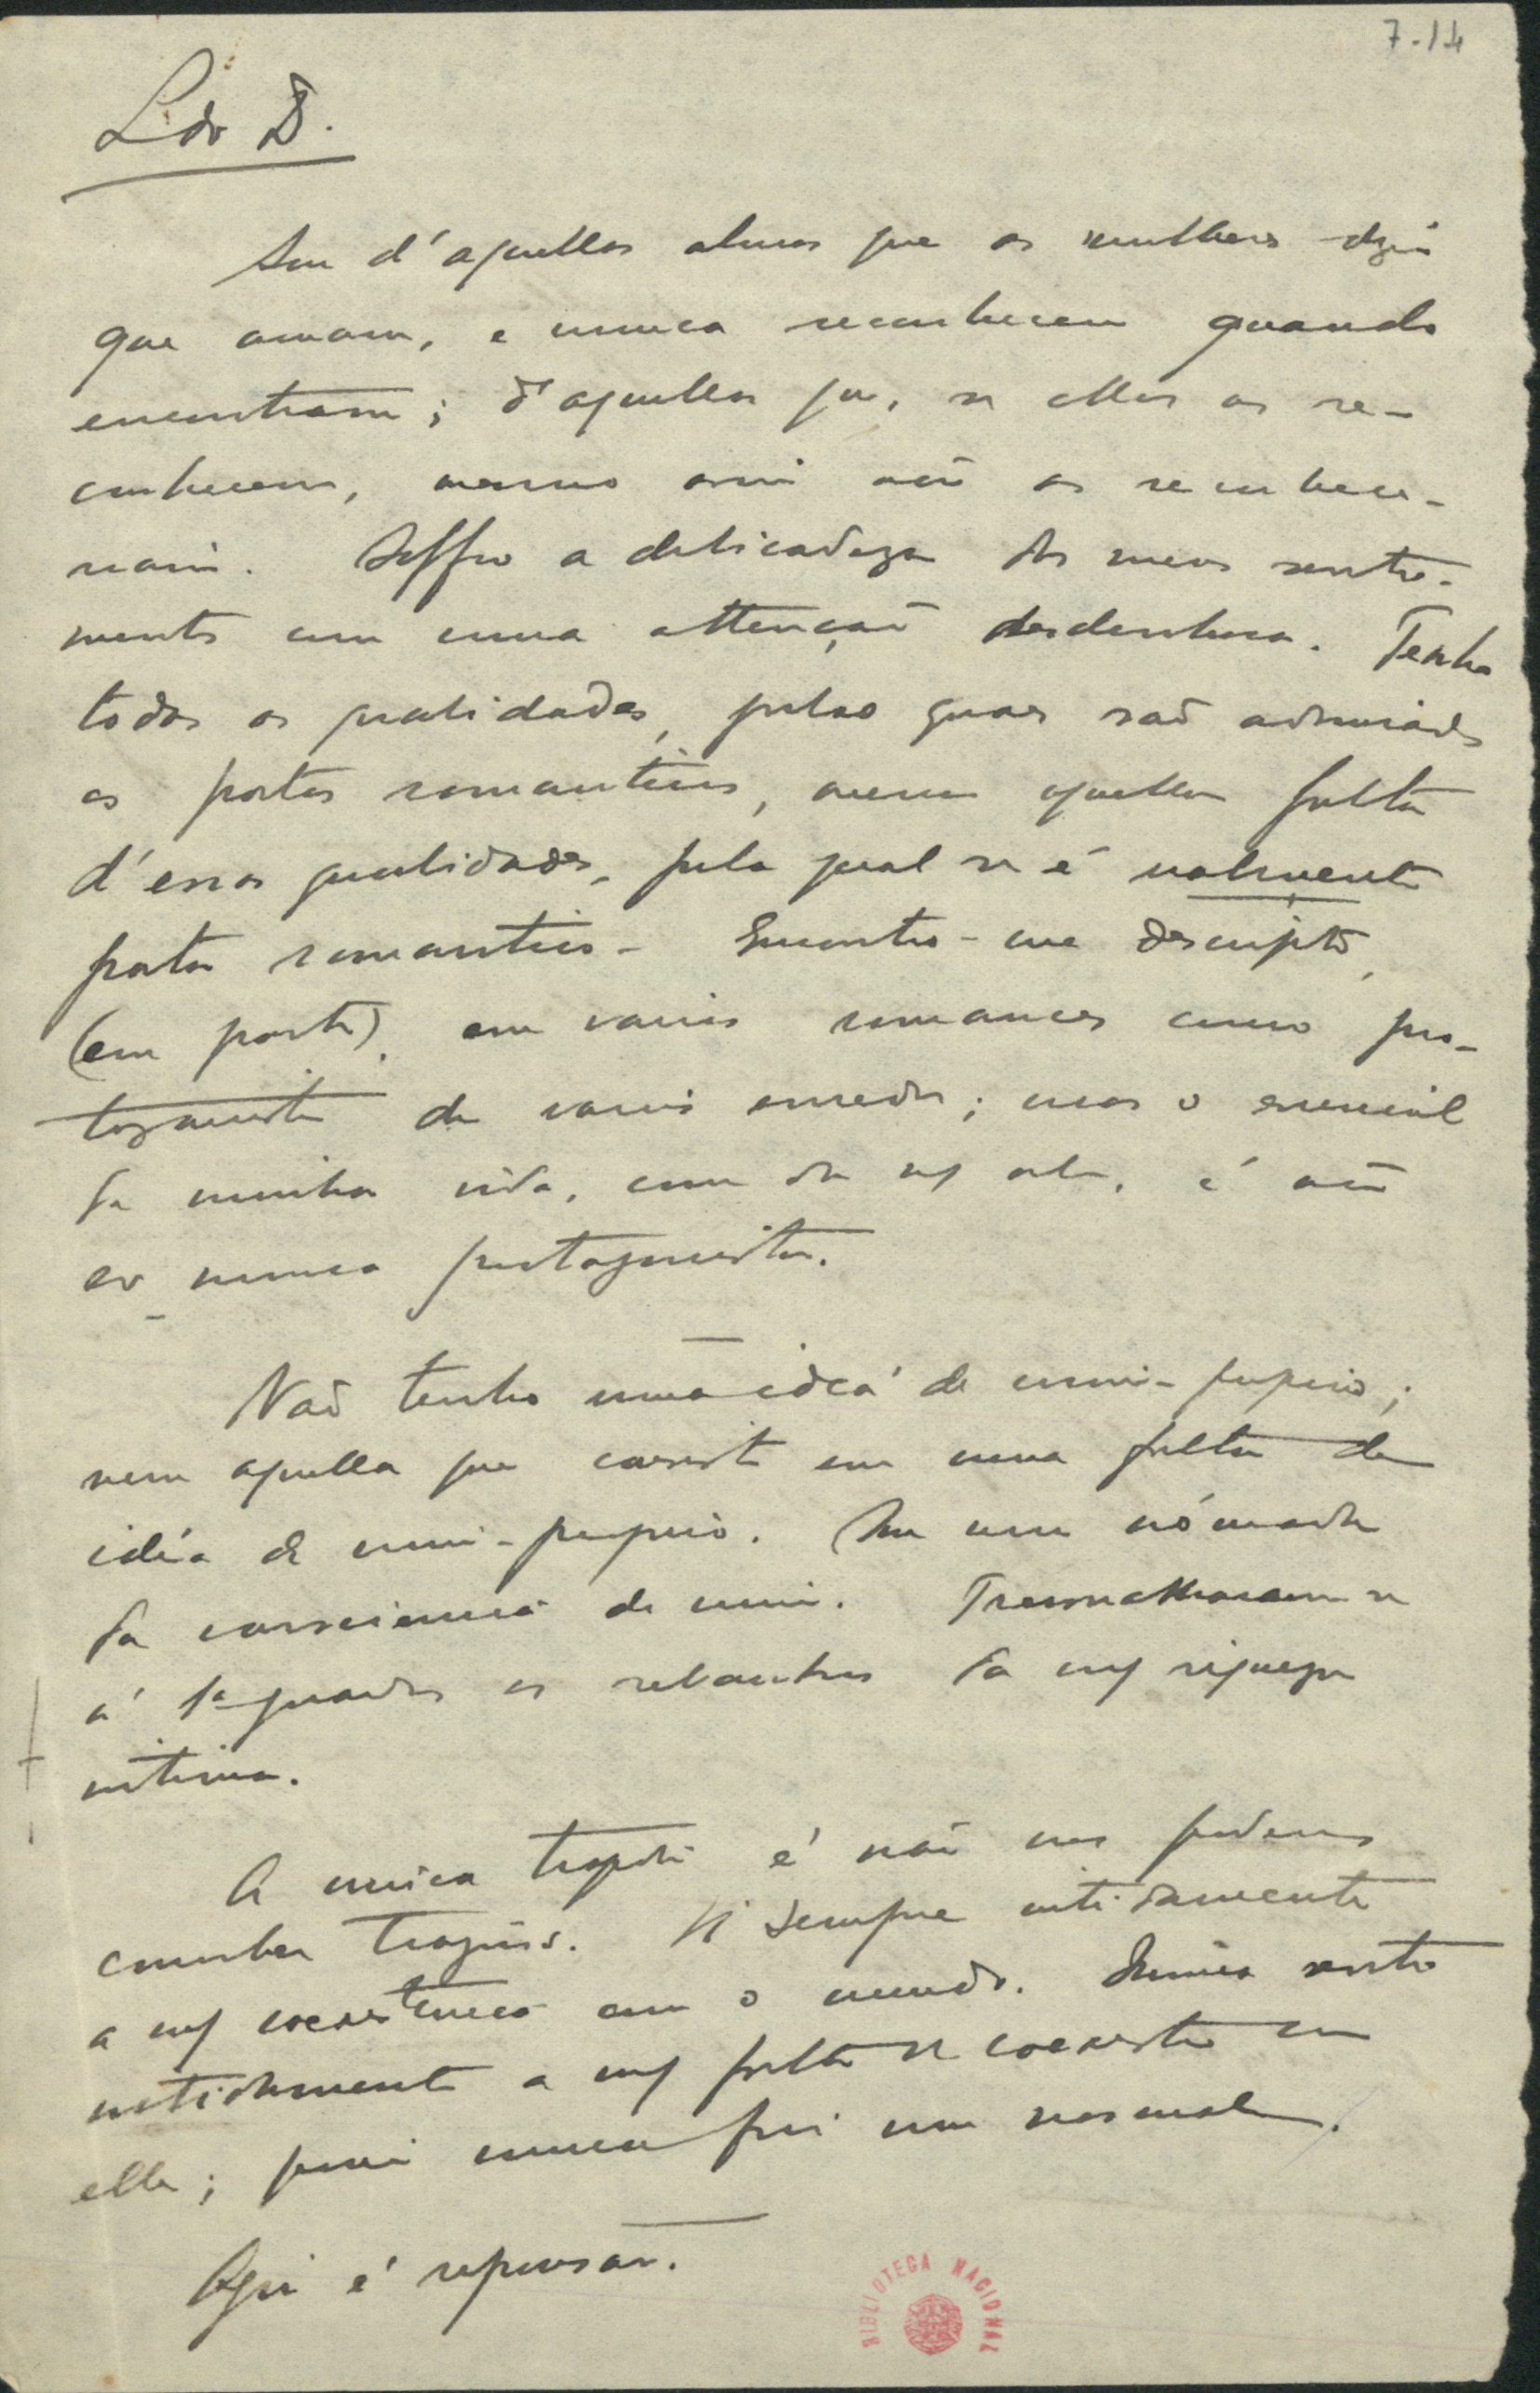 7-14
L do D.
Sou d'aquellas almas que as mulheres dizem
que amam, e nunca reconhecem quando
encontram; d'aquellas que, se ellas as re-
conhecem, mesmo assim não as reconhece-
riam. Soffro a delicadeza dos meus senti-
mentos com uma attenção desdenhosa. Tenho
todas as qualidades, pelas quaes são admirados
os poetas romanticos, mesmo aquella falta
d'essas qualidades, pela qual se é realmente
poeta romantico. Encontro-me descripto,
(em parte), em varios romances como pro-
tagonista de varios enredos; mas o essencial
da minha vida, como da mª alma, é não
ser nunca protagonista.
Não tenho uma idéa de mim-proprio;
nem aquella que consiste em uma falta de
idéa de mim-proprio. Sou um nómada
da consciencia de mim. Tresmalharam-se
á 1ª guarda os rebanhos da mª riqueza
intima.
A unica tragedia é não nos podermos
conceber tragicos. Vi sempre nitidamente
a mª coexistencia com o mundo. Nunca senti
nitidamente a mª falta de coexistir com
elle; por isso nunca fui um normal.
Agir é repousar.
BIBLIOTECA NACIONAL